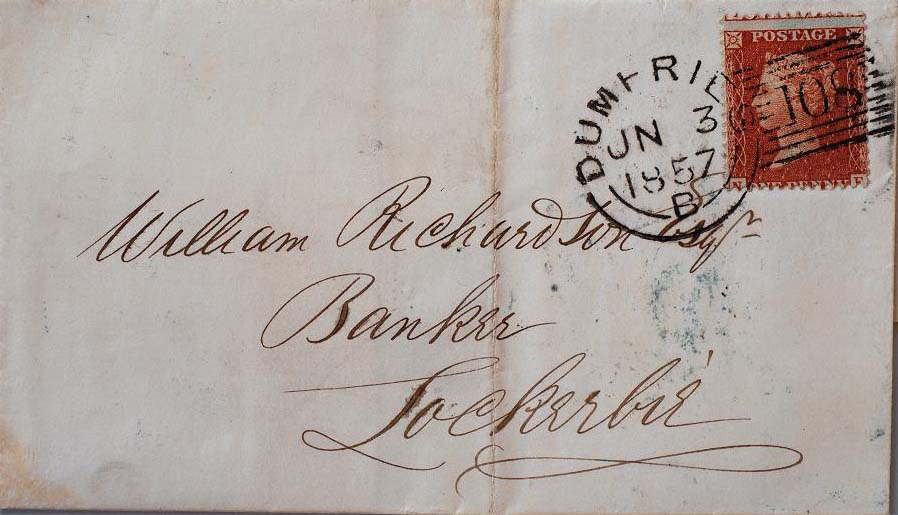 POSTAGE
108
DUMFRIE
JN 3
1857
B
William Richardson Esqr
Banker
Lockerbie